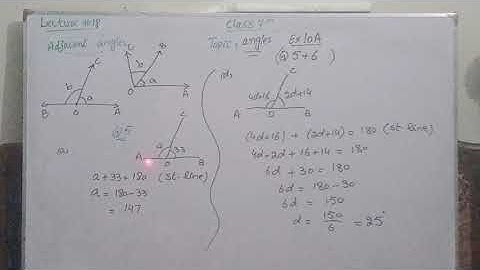 Lecture #18
Class 7th
Adjacent angles
Topic, angles
Ex 10A
(Q 5+6)
C
b
a
B
O
A
C
B
b
a
O
A
Q5
(a)
C
a
33
A
O
B
a + 33 = 180 (St-line)
a = 180-33
= 147
(d)
C
4d+16
2d+14
A
O
B
(4d+16) + (2d+14) = 180 (St-line)
4d+2d + 16+14 = 180
6d + 30 = 180
6d = 180-30
6d = 150
d = 150/6 = 25°